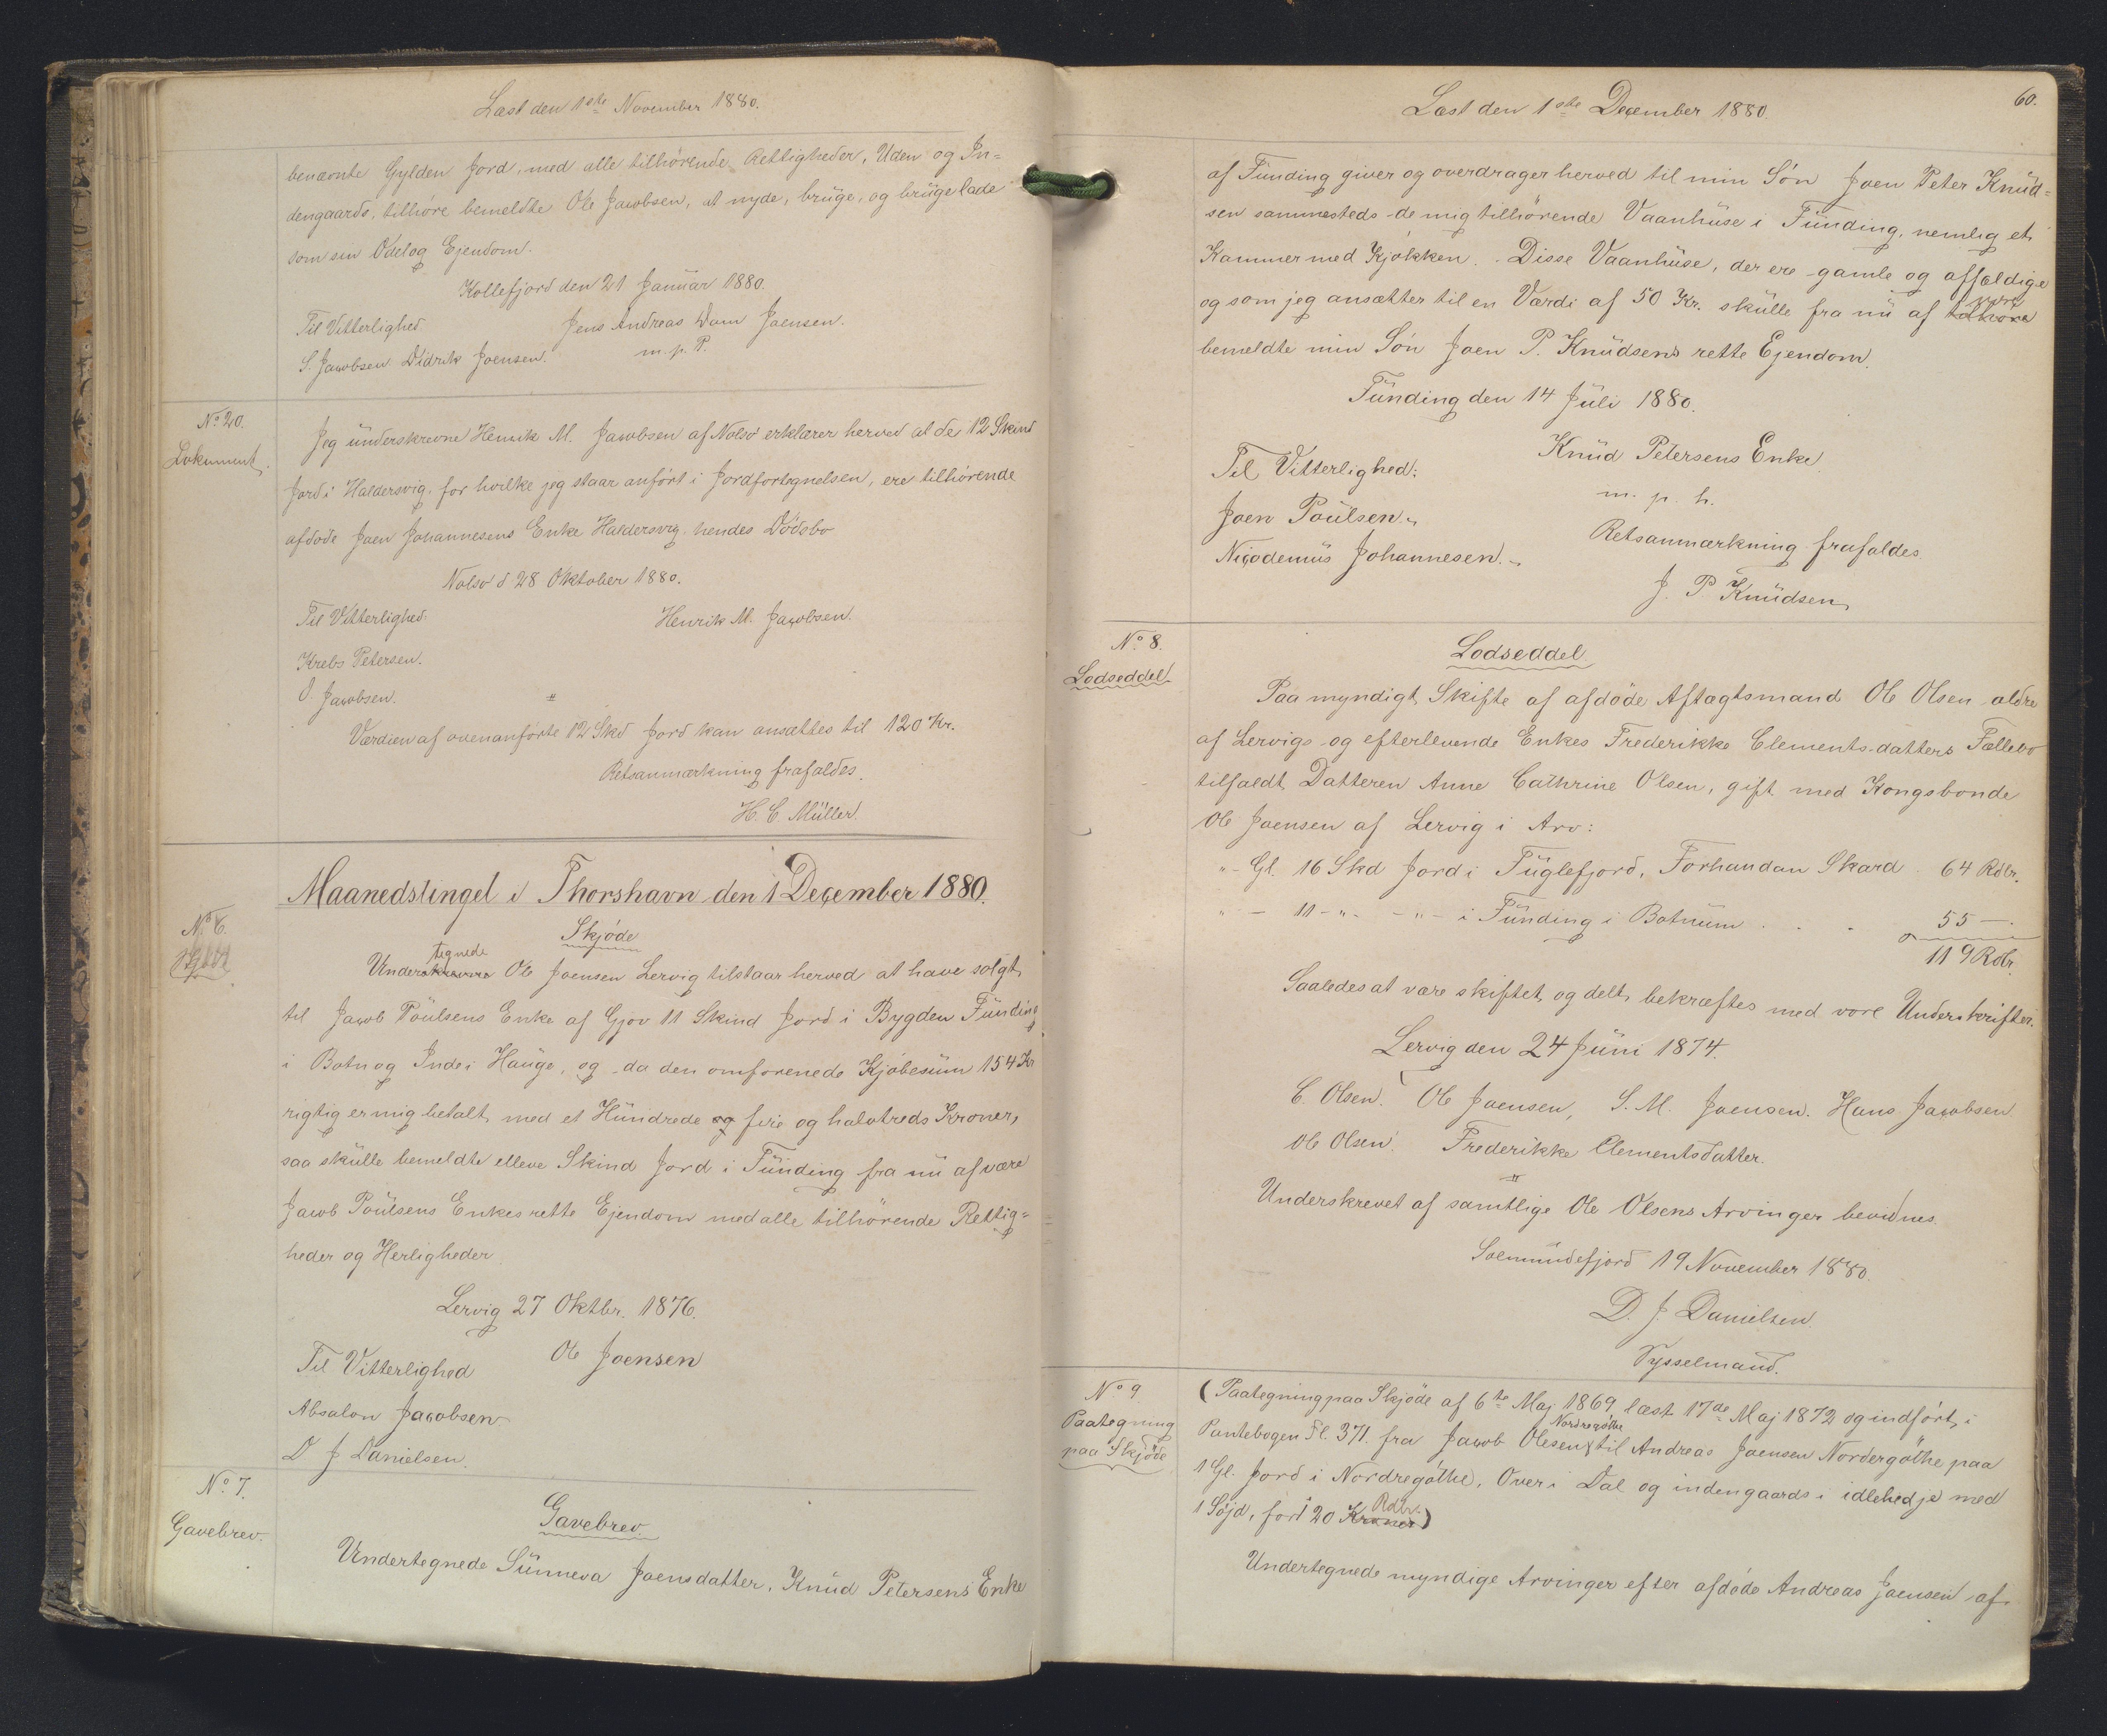 Læst den 1ste November 1880.
benævnte Gylden Jord, med alle tilhørende Rettigheder, Uden og In=
dengaards, tilhøre bemeldte Ole Jacobsen, at nyde, brüge, og brüge lade
som sin Odel og Ejendom.
Kollefjord den 21 Januar 1880.
Til Vitterlighed
Jens Andreas Dam Joensen.
S. Jacobsen Didrik Joensen.
m. p. P.
No 20.
Dokument.
Jeg ünderskrevne Henrik M. Jacobsen af Nolsö erklærer herved at de 12 Skind
Jord i Haldersvig, for hvilke jeg staar anført i Jordfortegnelsen, ere tilhørende
afdøde Joen Johannesens Enke Haldersvig hendes Dødsbo
Nolsö d 28 Oktober 1880.
Til Vitterlighed.
Henrik M. Jacobsen.
Krebs Petersen.
O. Jacobsen.
Værdien af ovenanførte 12 Skd Jord kan ansættes til 120 Kr.
Retsanmærkning frafaldes.
H. C. Müller.
Maanedstingel i Thorshavn den 1 December 1880.
No 6.
Skjøde
tegnede
Underskrevne Ole Joensen Lervig tilstaar herved at have solgt
til Jacob Poülsens Enke af Gjov 11 Skind Jord i Bygden Fünding
i Botn og Inde i Haüge, og da den omforenede Kjøbesüm 154 Kr
rigtig er mig betalt med et Hündrede og fire og halvtreds Kroner,
saa skülle bemeldte elleve Skind Jord i Fünding fra nü af være
Jacob Poülsens Enkes rette Ejendom med alle tilhørende Rettig=
heder og Herligheder
Lervig 27 Oktbr. 1876.
Til Vitterlighed
Ole Joensen
Absalon Jacobsen
D J Danielsen.
No 7.
Gavebrev.
Gavebrev.
Undertegnede Sünneva Joensdatter, Knüd Petersens Enke
Læst den 1ste December 1880.
60.
af Fünding giver og overdrager herved til min Søn Joen Peter Knüd=
sen sammesteds de mig tilhørende Vaanhüse i Fünding, nemlig et
Kammer med Kjøkken. Disse Vaanhüse, der ere gamle og affældige
og som jeg ansætter til en Værdi af 50 Kr. skülle fra nü af tilhøre
være
bemeldte min Søn Joen P. Knüdsens rette Ejendom.
Fünding den 14 Jüli 1880.
Knüd Petersens Enke
Til Vitterlighed:
m. p. h.
Joen Poülsen.
Retsanmærkning frafaldes
Nicodemüs Johannesen.
J. P. Knüdsen
No 8.
Lodseddel
Lodseddel
Paa myndigt Skifte af afdöde Aftagtsmand Ole Olsen ældre
af Lervigs og efterlevende Enkes Frederikke Clements-datters Fællebo
tilfaldt Datteren Anne Cathrine Olsen, gift med Kongsbonde
Ole Joensen af Lervig i Arv:
" - Gl. 16 Skd Jord i Füglefjord, Forhandan Skard . 64 Rdlr.
" - 11 - " - - " - i Fünding i Botnüm . . . 55 —
119 Rdlr.
Saaledes at være skiftet og delt bekræftes med vore Underskrifter.
Lervig den 24 Jüni 1874.
C. Olsen. Ole Joensen, S. M. Joensen. Hans Jacobsen.
Ole Olsen. Frederikke Clementsdatter.
Underskrevet af samtlige Ole Olsens Arvinger bevidnes.
Solmündefjord 19 November 1880.
D. J. Danielsen.
Sysselmand.
No 9
Paategning
paa Skjøde
(Paategning paa Skjøde af 6te Maj 1869 læst 17de Maj 1872 og indført i
Pantebogen Fl. 371. fra Jacob Olesen til Andreas Joensen Nordergöthe paa
Nordregöthe
1 Gl. Jord i Nordregöthe, Over i Dal og indengaards i idlehedje med
1 Søjd, for 120 Kroner)
Rdlr.
Undertegnede myndige Arvinger efter afdøde Andreas Joensen af